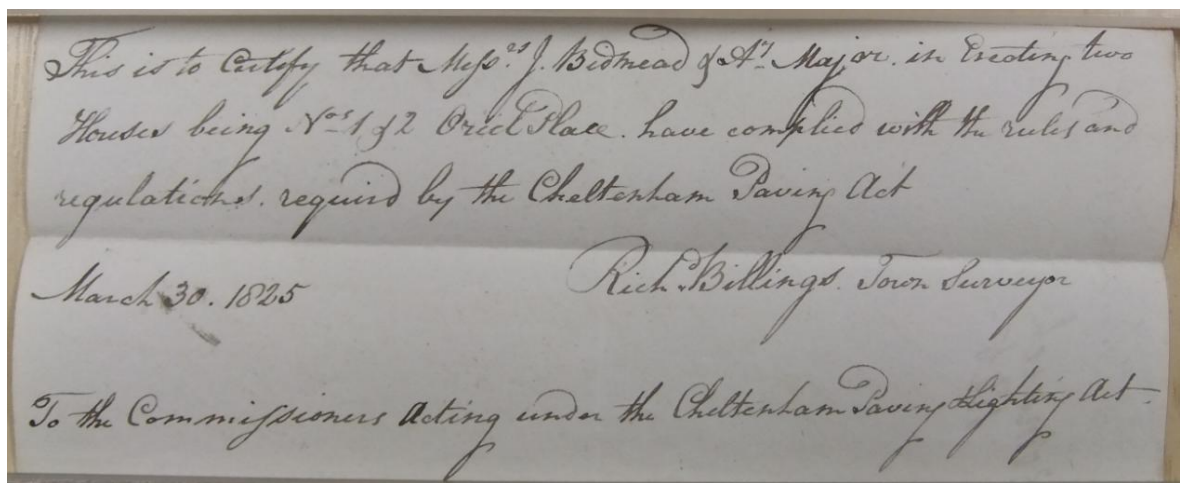 This is to Certify that Mess.rs J. Bidmead & A.r Major. in Erecting two
Houses being Nos 1 & 2 Oriel Place. have complied with the rules and
regulations. requird by the Cheltenham Paving Act
March 30. 1825
Richd. Billings. Town Surveyor
To the Commissioners Acting under the Cheltenham Paving & Lighting Act.